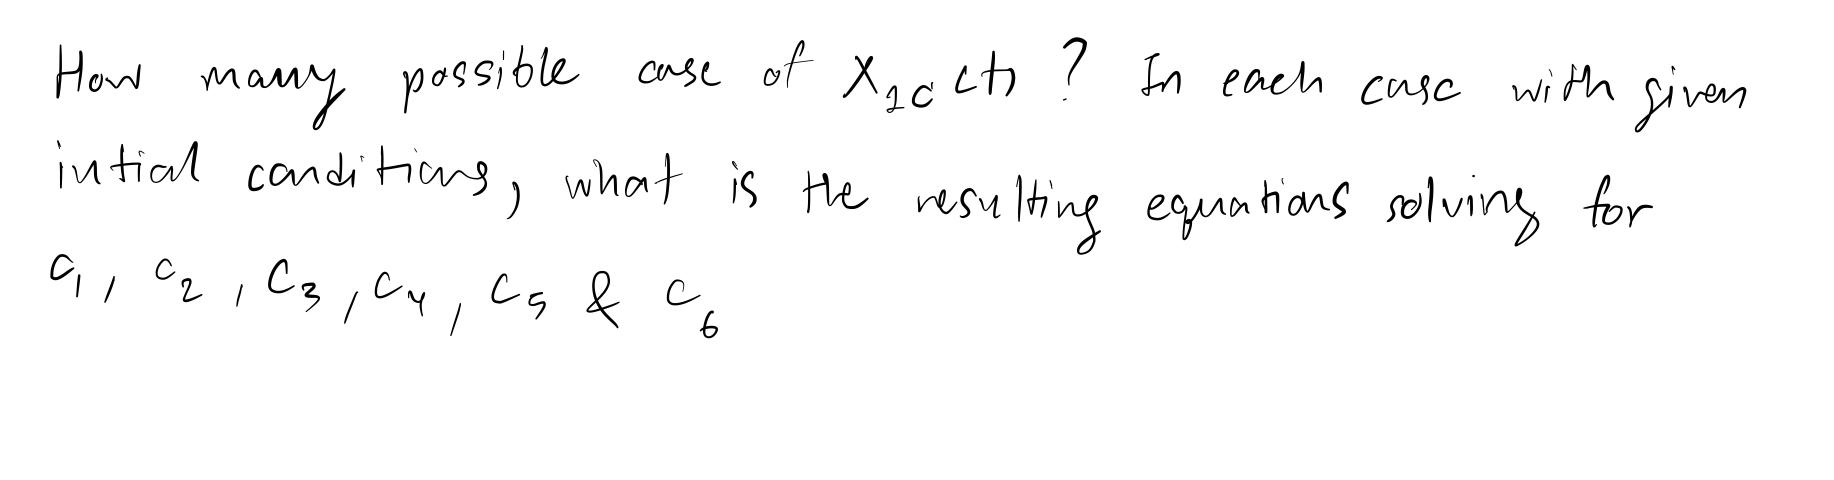 How many possible case of X₂c(t) ? In each case with given
intial conditions, what is the resulting equations solving for
c₁, c₂, c₃, c₄, c₅ & c₆